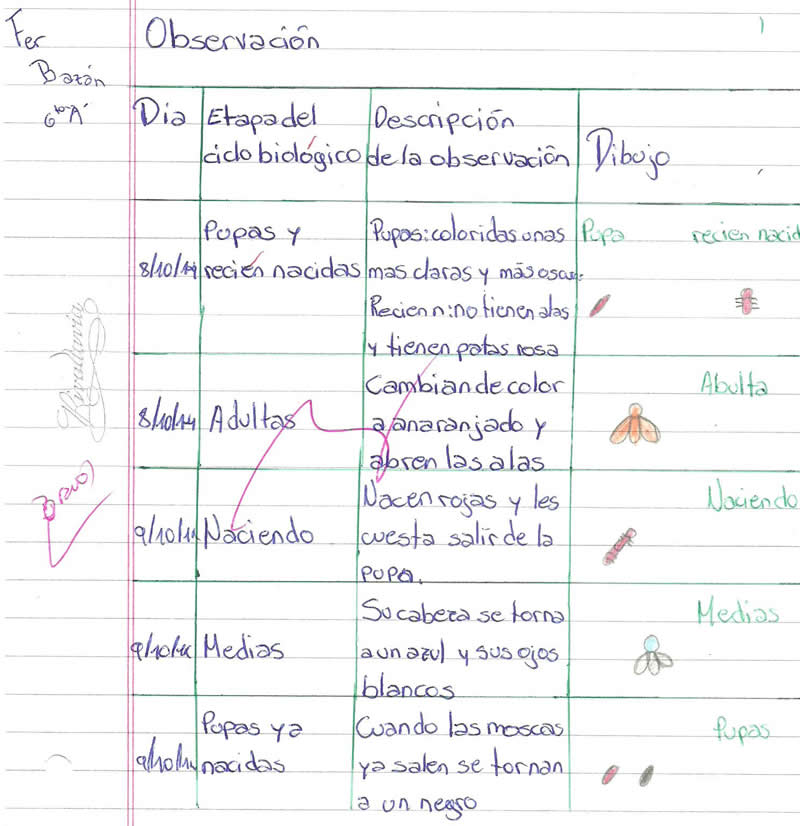 Fer
Bazán
6to "A"
Observación
1
Dia
Etapa del
ciclo biológico
Descripción
de la observación
Dibujo
8/10/14
Pupas y
recién nacidas
Pupas: coloridas unas
mas claras y más oscu.
Recien n: no tienen alas
y tienen patas rosa
Pupa
recien nacid
8/10/14
Adultas
Cambian de color
a anaranjado y
abren las alas
Abulta
9/10/14
Naciendo
Nacen rojas y les
cuesta salir de la
pupa.
Naciendo
9/10/14
Medias
Su cabeza se torna
a un azul y sus ojos
blancos
Medias
9/10/14
Pupas ya
nacidas
Cuando las moscas
ya salen se tornan
a un negro
Pupas
Rivadavia
Bravo)